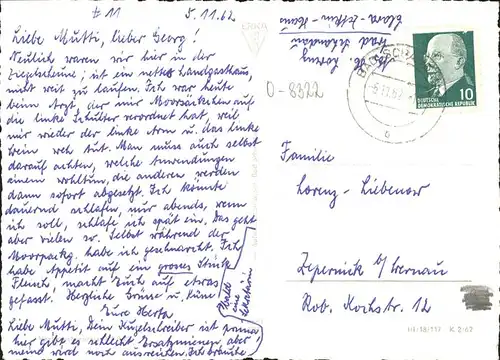 # 11
5.11.62
Liebe Mutti, lieber Georg!
Neulich waren wir hier in der
Ziegelscheune; ist ein nettes Landgasthaus,
nicht weit zu laufen. Ich war heute
beim Arzt, der mir Moorsäckchen auf
die linke Schulter verordnet hat, weil
mir wieder der linke Arm u. das linke
Bein weh tut. Man muss auch selbst
darauf achten, welche Anwendungen
einem wohltun, die anderen werden
dann sofort abgesetzt. Ich könnte
dauernd schlafen, nur abends, wenn
ich soll, schlafe ich spät ein. Das geht
aber vielen so. Selbst während der
Moorpackg. habe ich geschnarcht. Ich
habe Appetit auf ein grosses Stück
Fleisch, macht Euch auf etwas
gefasst. Herzliche Grüsse u. Küsse
Eure Herta
Liebe Mutti, Dein Kugelschreiber ist prima
hier gibt es schlecht Ersatzminen, aber
meine wird noch ausreichen. Ich brauche
eine
Bad Schandau
O-8322
6.11.62
DEUTSCHE
DEMOKRATISCHE REPUBLIK
10
Familie
Lorenz-Liebenow
Zepernick b/Bernau
Rob. Kochstr. 12
III/18/117 K 2/62